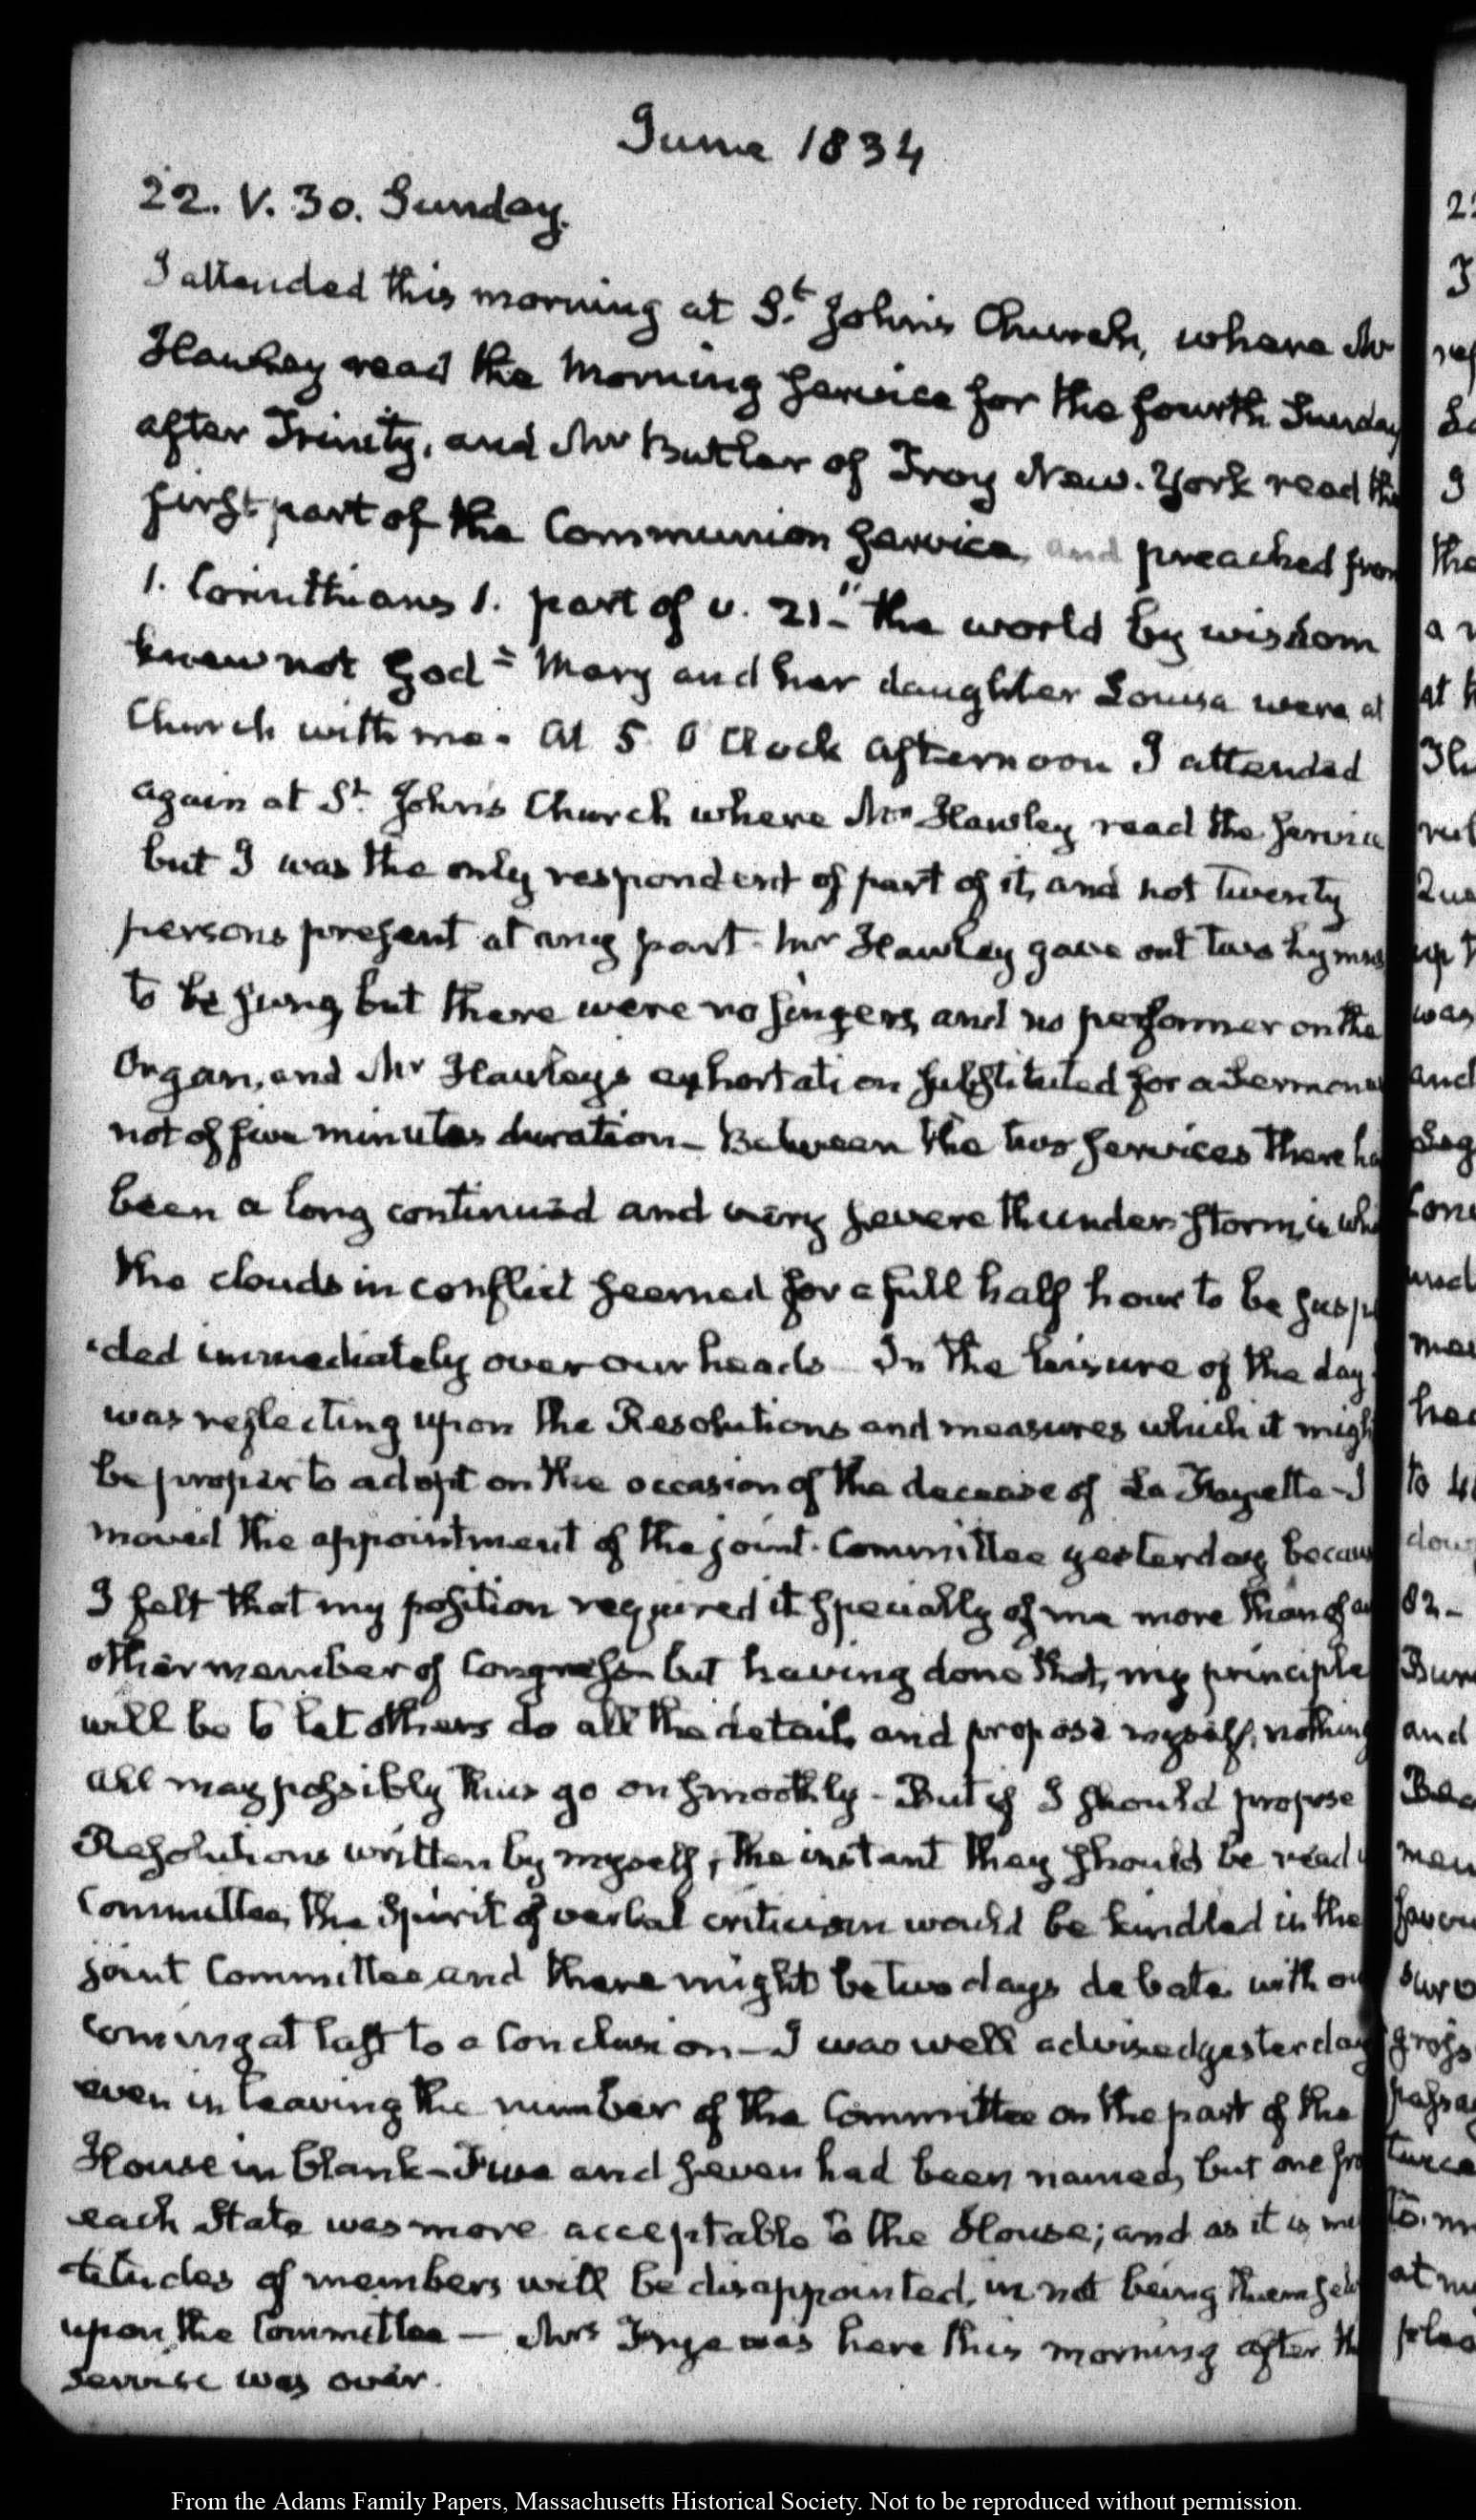 June 1834
22. V. 30. Sunday.
I attended this morning at St. John's Church, where Mr
Hawley read the Morning Service for the fourth Sunday
after Trinity, and Mr Butler of Troy New-York read the
first part of the Communion Service, and preached from
1. Corinthians 1. part of v. 21. "the world by wisdom
knew not God" Mary and her daughter Louisa were at
Church with me. At 5 O'Clock afternoon I attended
again at St. John's Church where Mr Hawley read the Service
but I was the only respondent of part of it, and not twenty
persons present at any part. Mr Hawley gave out two hymns
to be sung, but there were no singers, and no performer on the
Organ, and Mr Hawley's exhortation substituted for a Sermon
not of five minutes duration— Between the two services there ha
been a long continued and very severe thunder-storm, in whi
the clouds in conflict seemed for a full half hour to be susp
ded immediately over our heads— In the leisure of the day
was reflecting upon the Resolutions and measures which it migh
be proper to adopt on the occasion of the decease of La Fayette— I
moved the appointment of the joint Committee yesterday becau
I felt that my position required it specially of me more than of a
other member of Congress— but having done that, my principle
will be to let others do all the detail, and propose myself, nothing
all may possibly thus go on smoothly— But if I should propose
Resolutions written by myself, the instant they should be read
Committee, the Spirit of verbal criticism would be kindled in the
joint Committee and there might be two days debate with ou
coming at last to a Conclusion— I was well advised yesterday
even in leaving the number of the Committee on the part of the
House in blank— Five and seven had been named, but one fro
each State was more acceptable to the House; and as it is mu
titudes of members will be disappointed, in not being themselv
upon the Committee — Mrs Frye was here this morning after th
service was over.
From the Adams Family Papers, Massachusetts Historical Society. Not to be reproduced without permission.